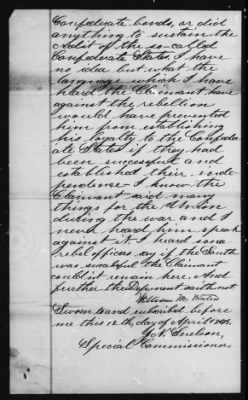 Confederate bonds, or did
anything to sustain the
credit of the so-called
Confederate States, I have
no idea but what the
language which I have
heard the Claimant have
against the rebellion
would have prevented
him from establishing
his loyalty to the Confeder
ate States if they had
been successful and
established their inde
pendence. I know the
Claimant said many
things for the Union
during the war and I
never heard him speak
against it. I heard some
rebel officers say if the South
was successful the Claimant
couldn't remain here. And
further the Deponent saith not
William M.
Sworn to and subscribed before
me this 12th day of April
Snelson,
Special Commissioner.